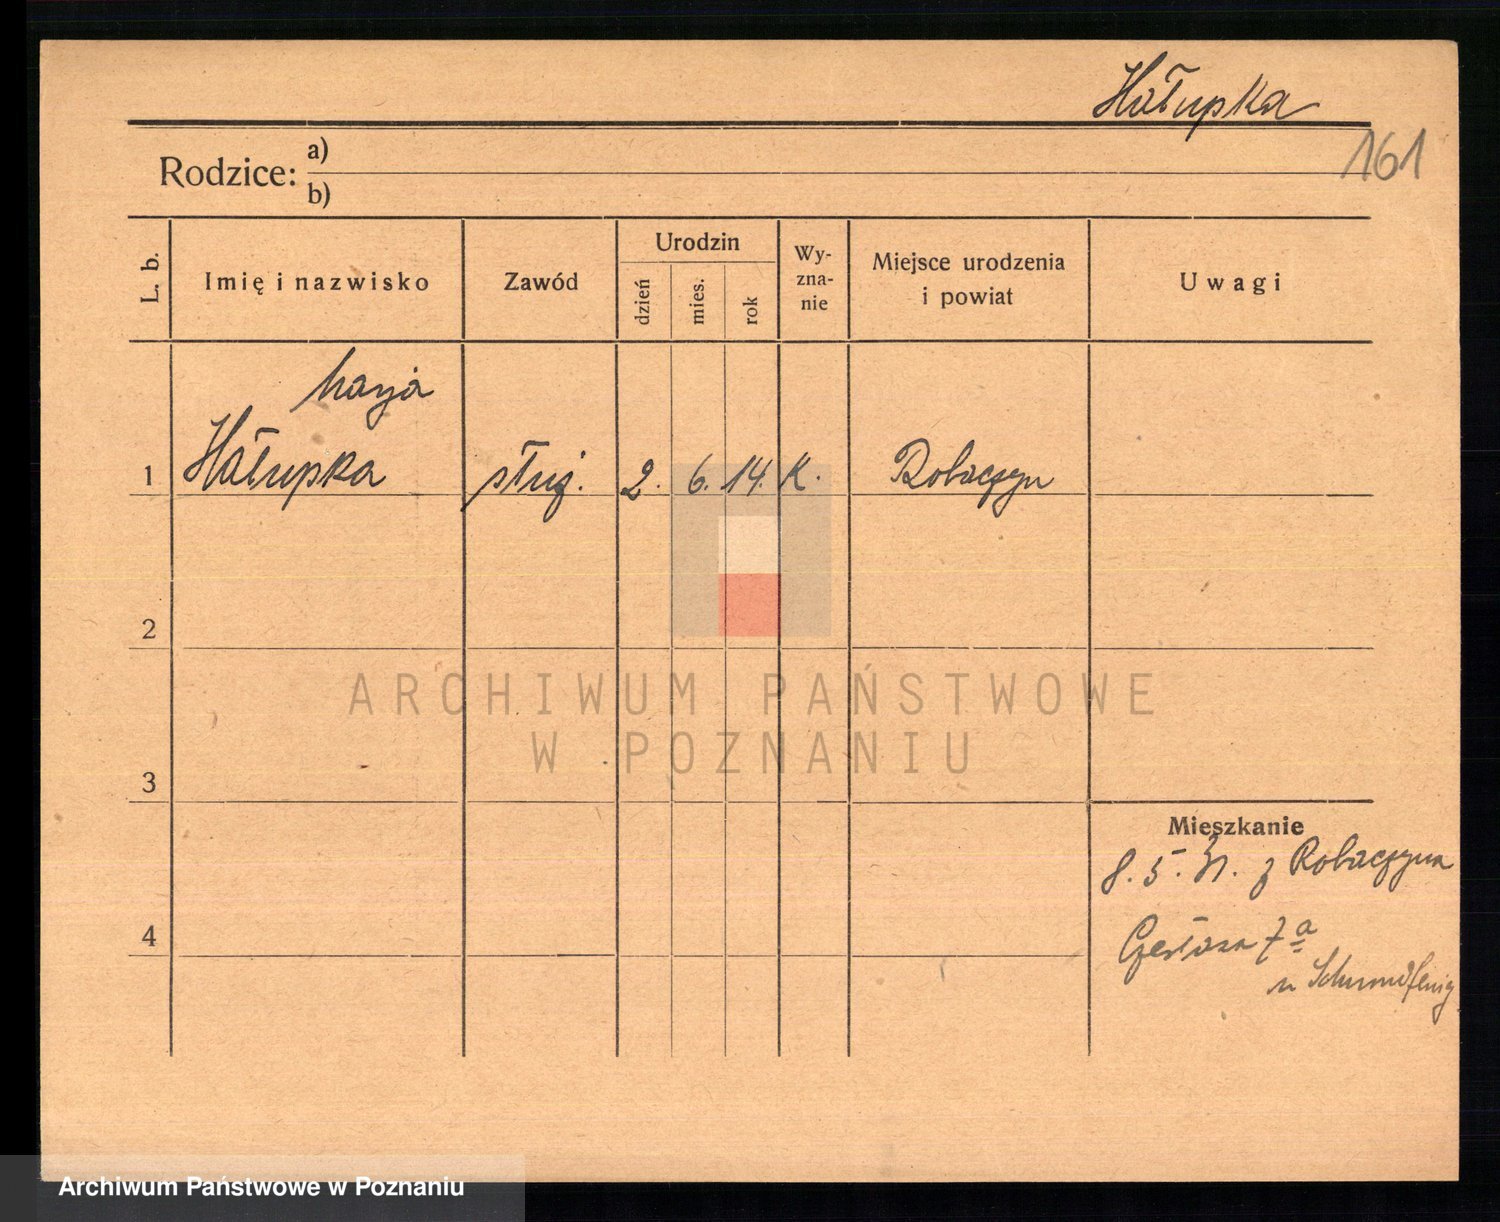 Hałupka
161
Rodzice: a)
b)
L. b. Imię i nazwisko Zawód Urodzin dzień mies. rok Wyznanie Miejsce urodzenia i powiat Uwagi
Marja
1 Hałupka służ. 2. 6. 14. K. Robaczyn
2
ARCHIWUM PAŃSTWOWE
W POZNANIU
3
Mieszkanie
8. 5. 31. z Robaczyna
4
7a
u
Archiwum Państwowe w Poznaniu